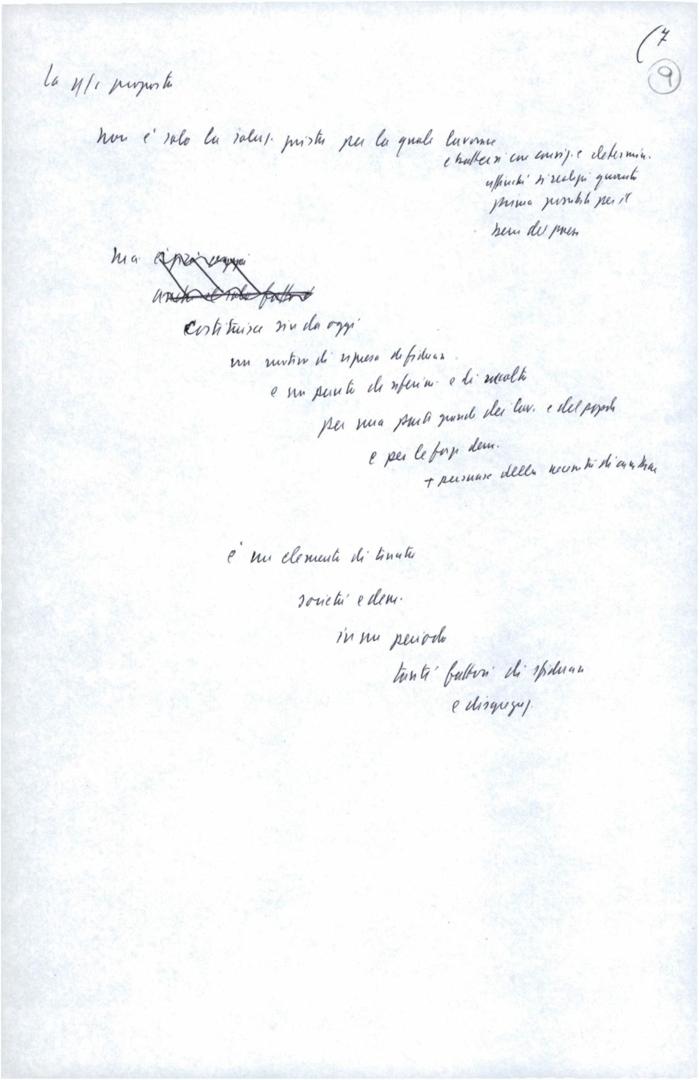 (7
9
La n/s proposta
non è solo la soluz. giusta per la quale lavorare
e battersi con convinz. e determin.
affinché si realizzi quanto
prima possibile per il
bene del paese
ma è già oggi
anche il solo fatto di
Costituisce sin da oggi
un motivo di ripresa di fiducia
e un punto di riferim. e di raccolta
per una parte grande dei lav. e del popolo
e per le forze dem.
+ persuase della necessità di cambiare
è un elemento di tenuta
società e dem.
in un periodo
tanti fattori di sfiducia
e disgregaz.